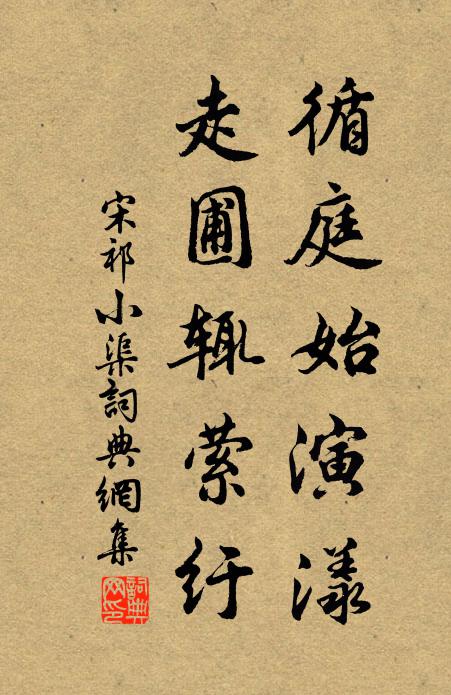 循庭始演漾
走圃辄萦纡
宋祁小渠詞典網集
詞典网印